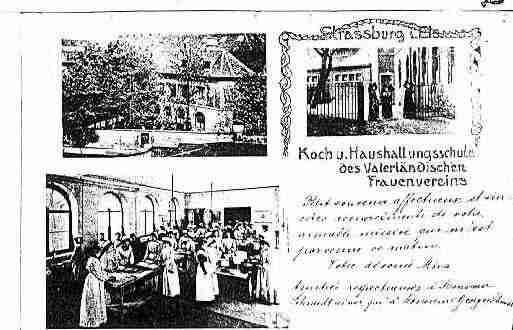 Strassburg i. Els.
Koch u. Haushaltungsschule
des Vaterländischen
Frauenvereins
Petit souvenir affectueux et sin-
cères remerciements de votre
aimable missive qui m'est
parvenue ce matin.
Votre dévouée
Amitiés respectueuses à Monsieur
Schmidt ainsi qu'à Monsieur Georges